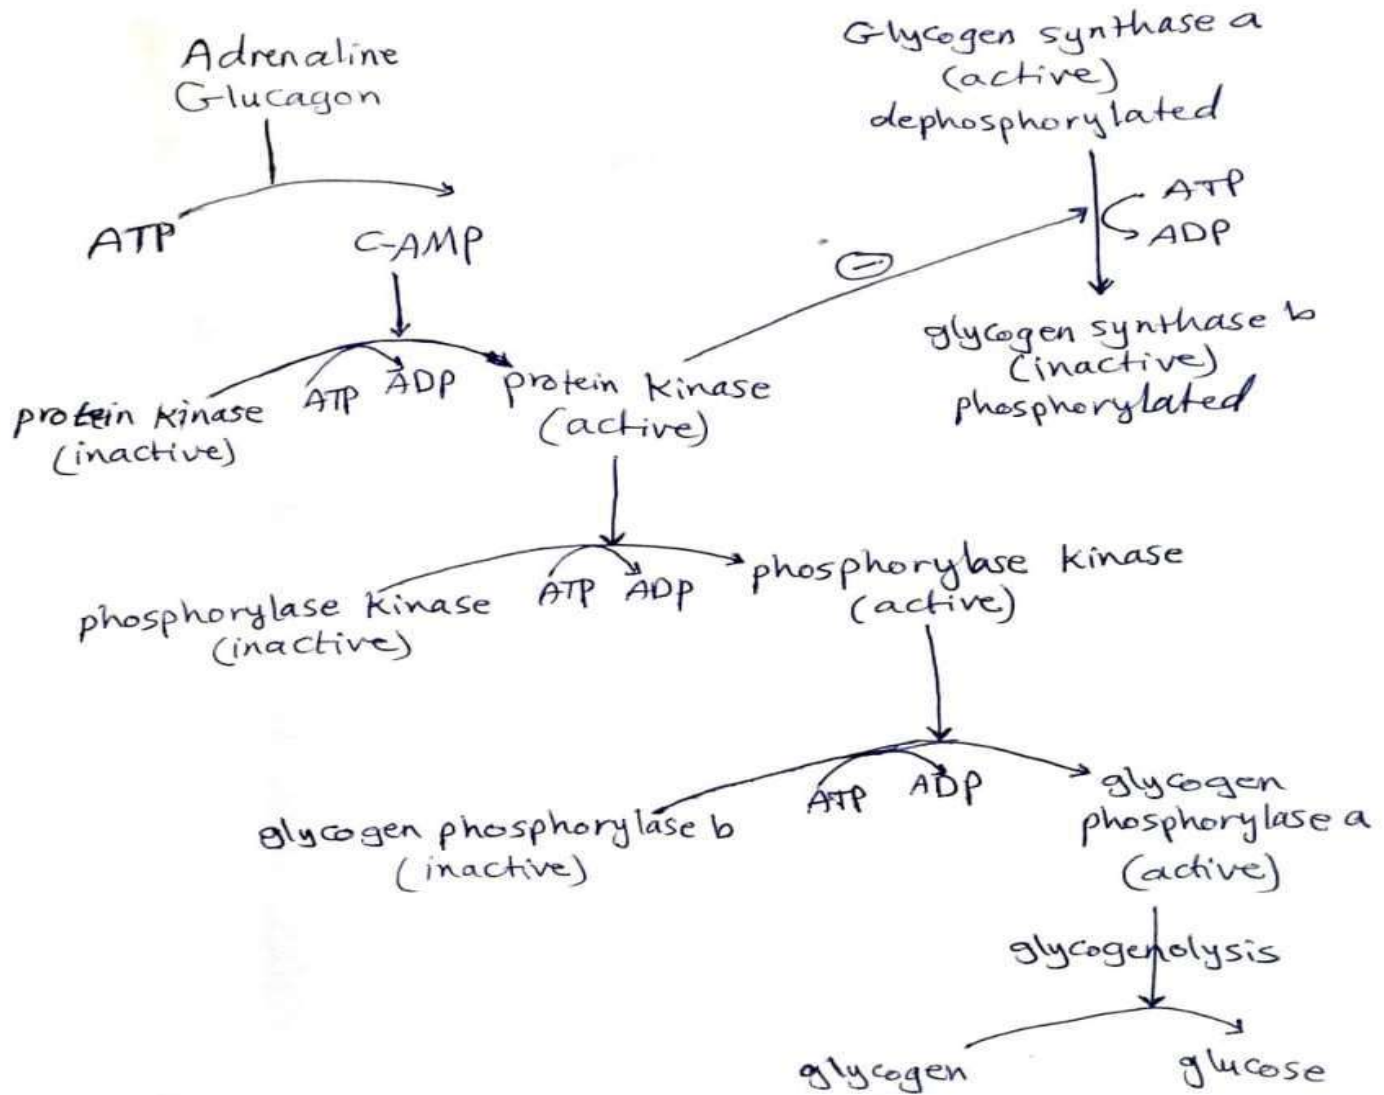 Adrenaline
Glucagon
ATP
C-AMP
Glycogen synthase a
(active)
dephosphorylated
ATP
ADP
glycogen synthase b
(inactive)
phosphorylated
protein kinase
(inactive)
ATP
ADP
protein kinase
(active)
phosphorylase kinase
(inactive)
ATP
ADP
phosphorylase kinase
(active)
glycogen phosphorylase b
(inactive)
ATP
ADP
glycogen
phosphorylase a
(active)
glycogenolysis
glycogen
glucose